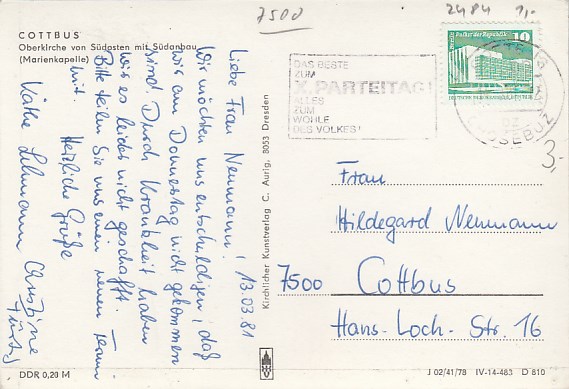 7500
2484 1,-
COTTBUS
Oberkirche von Südosten mit Südanbau
(Marienkapelle)
Liebe Frau Neumann! 13.03.81
Wir möchten uns entschuldigen, daß
wir am Donnerstag nicht gekommen
sind. Durch Krankheit haben
wir es leider nicht geschafft.
Bitte teilen Sie uns einen neuen Termin
mit. Herzliche Grüße
Käthe Lehmann
DDR 0,20 M
Kirchlicher Kunstverlag C. Aurig, 8053 Dresden
DAS BESTE
ZUM
X. PARTEITAG!
ALLES
ZUM
WOHLE
DES VOLKES!
Palast der Republik 10
3,-
Frau
Hildegard Neumann
7500 Cottbus
Hans-Loch-Str. 16
J 02/41/78 IV-14-483 D 810